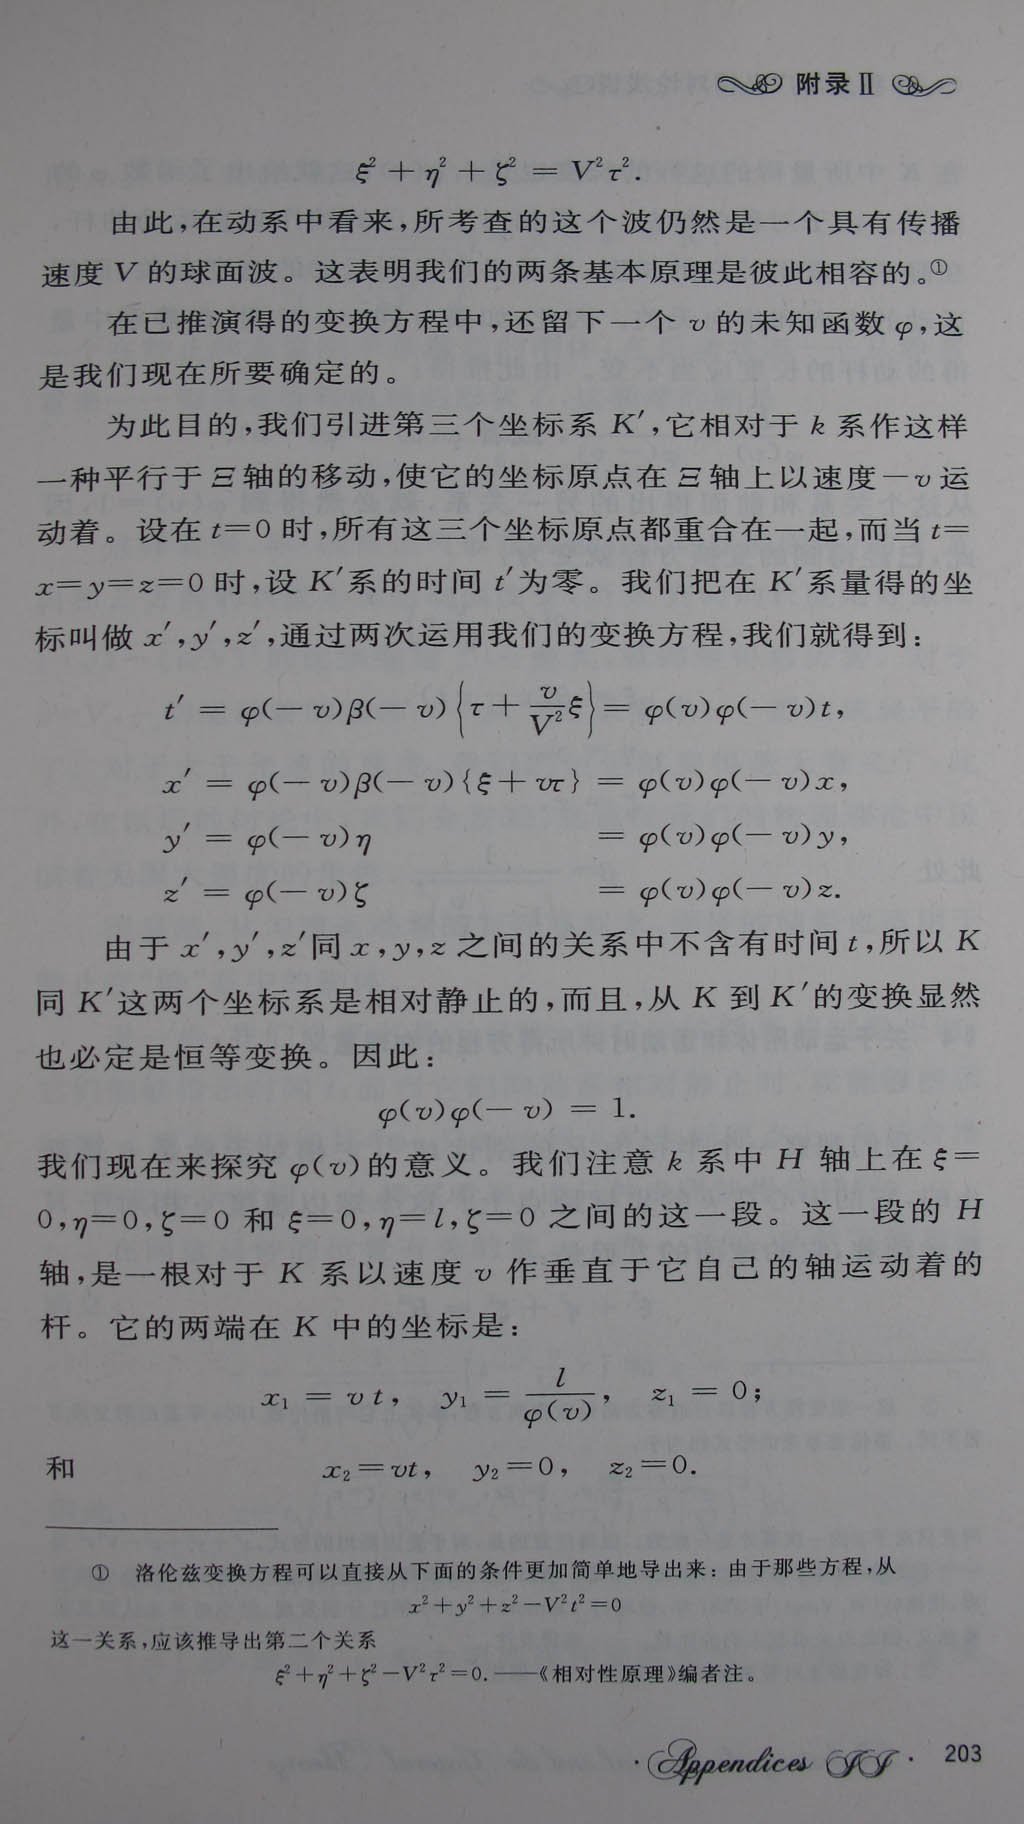 附录Ⅱ
ξ² + η² + ζ² = V²τ².
由此,在动系中看来,所考查的这个波仍然是一个具有传播
速度 V 的球面波。这表明我们的两条基本原理是彼此相容的。①
在已推演得的变换方程中,还留下一个 v 的未知函数 φ,这
是我们现在所要确定的。
为此目的,我们引进第三个坐标系 K′,它相对于 k 系作这样
一种平行于 Ξ 轴的移动,使它的坐标原点在 Ξ 轴上以速度 −v 运
动着。设在 t=0 时,所有这三个坐标原点都重合在一起,而当 t=
x=y=z=0 时,设 K′系的时间 t′为零。我们把在 K′系量得的坐
标叫做 x′,y′,z′,通过两次运用我们的变换方程,我们就得到:
t′ = φ(−v)β(−v){τ + v/V² ξ} = φ(v)φ(−v)t,
x′ = φ(−v)β(−v){ξ + vτ} = φ(v)φ(−v)x,
y′ = φ(−v)η = φ(v)φ(−v)y,
z′ = φ(−v)ζ = φ(v)φ(−v)z.
由于 x′,y′,z′同 x,y,z 之间的关系中不含有时间 t,所以 K
同 K′这两个坐标系是相对静止的,而且,从 K 到 K′的变换显然
也必定是恒等变换。因此:
φ(v)φ(−v) = 1.
我们现在来探究 φ(v)的意义。我们注意 k 系中 H 轴上在 ξ=
0,η=0,ζ=0 和 ξ=0,η=l,ζ=0 之间的这一段。这一段的 H
轴,是一根对于 K 系以速度 v 作垂直于它自己的轴运动着的
杆。它的两端在 K 中的坐标是:
x₁ = vt, y₁ = l/φ(v), z₁ = 0;
和 x₂=vt, y₂=0, z₂=0.
① 洛伦兹变换方程可以直接从下面的条件更加简单地导出来: 由于那些方程,从
x²+y²+z²−V²t²=0
这一关系,应该推导出第二个关系
ξ²+η²+ζ²−V²τ²=0. ——《相对性原理》编者注。
· Appendices II · 203